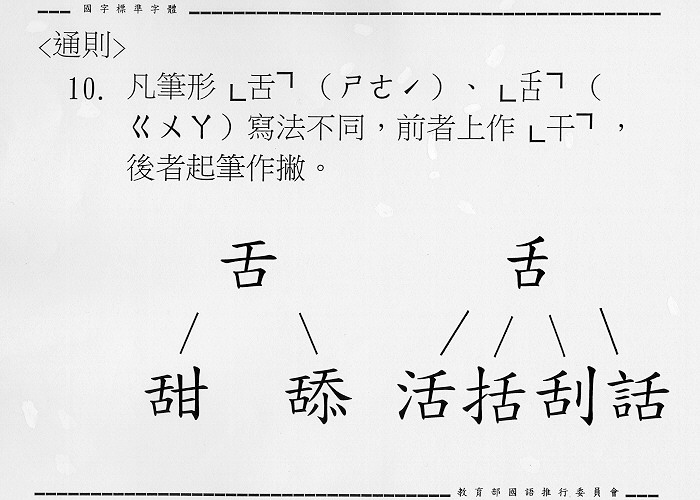 國字標準字體
<通則>
10. 凡筆形「𠯑」（ㄕㄜˊ）、「舌」（
ㄍㄨㄚ）寫法不同，前者上作「干」，
後者起筆作撇。
𠯑 舌
甜 舔 活 括 刮 話
教育部國語推行委員會